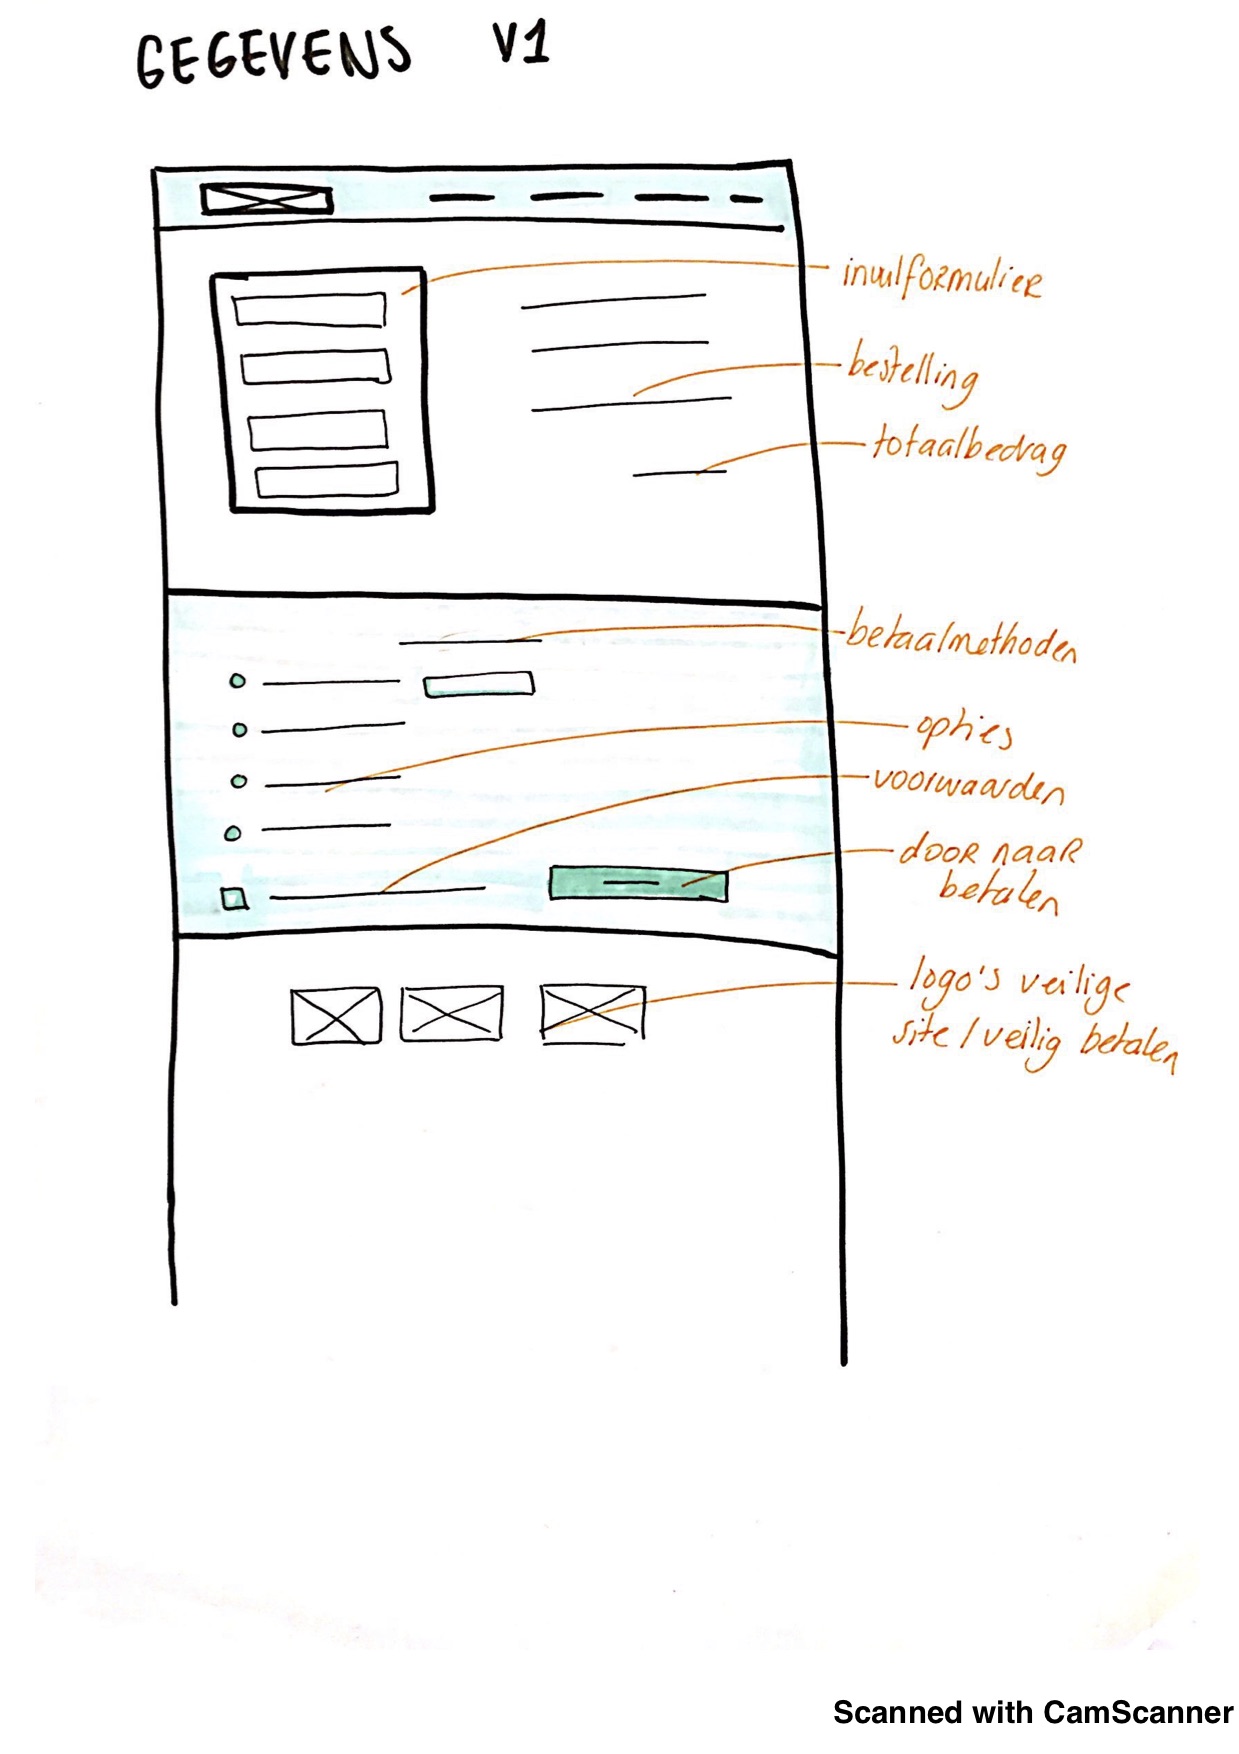 GEGEVENS V1
invulformulier
bestelling
totaalbedrag
betaalmethoden
opties
voorwaarden
door naar
betalen
logo's veilige
site / veilig betalen
Scanned with CamScanner